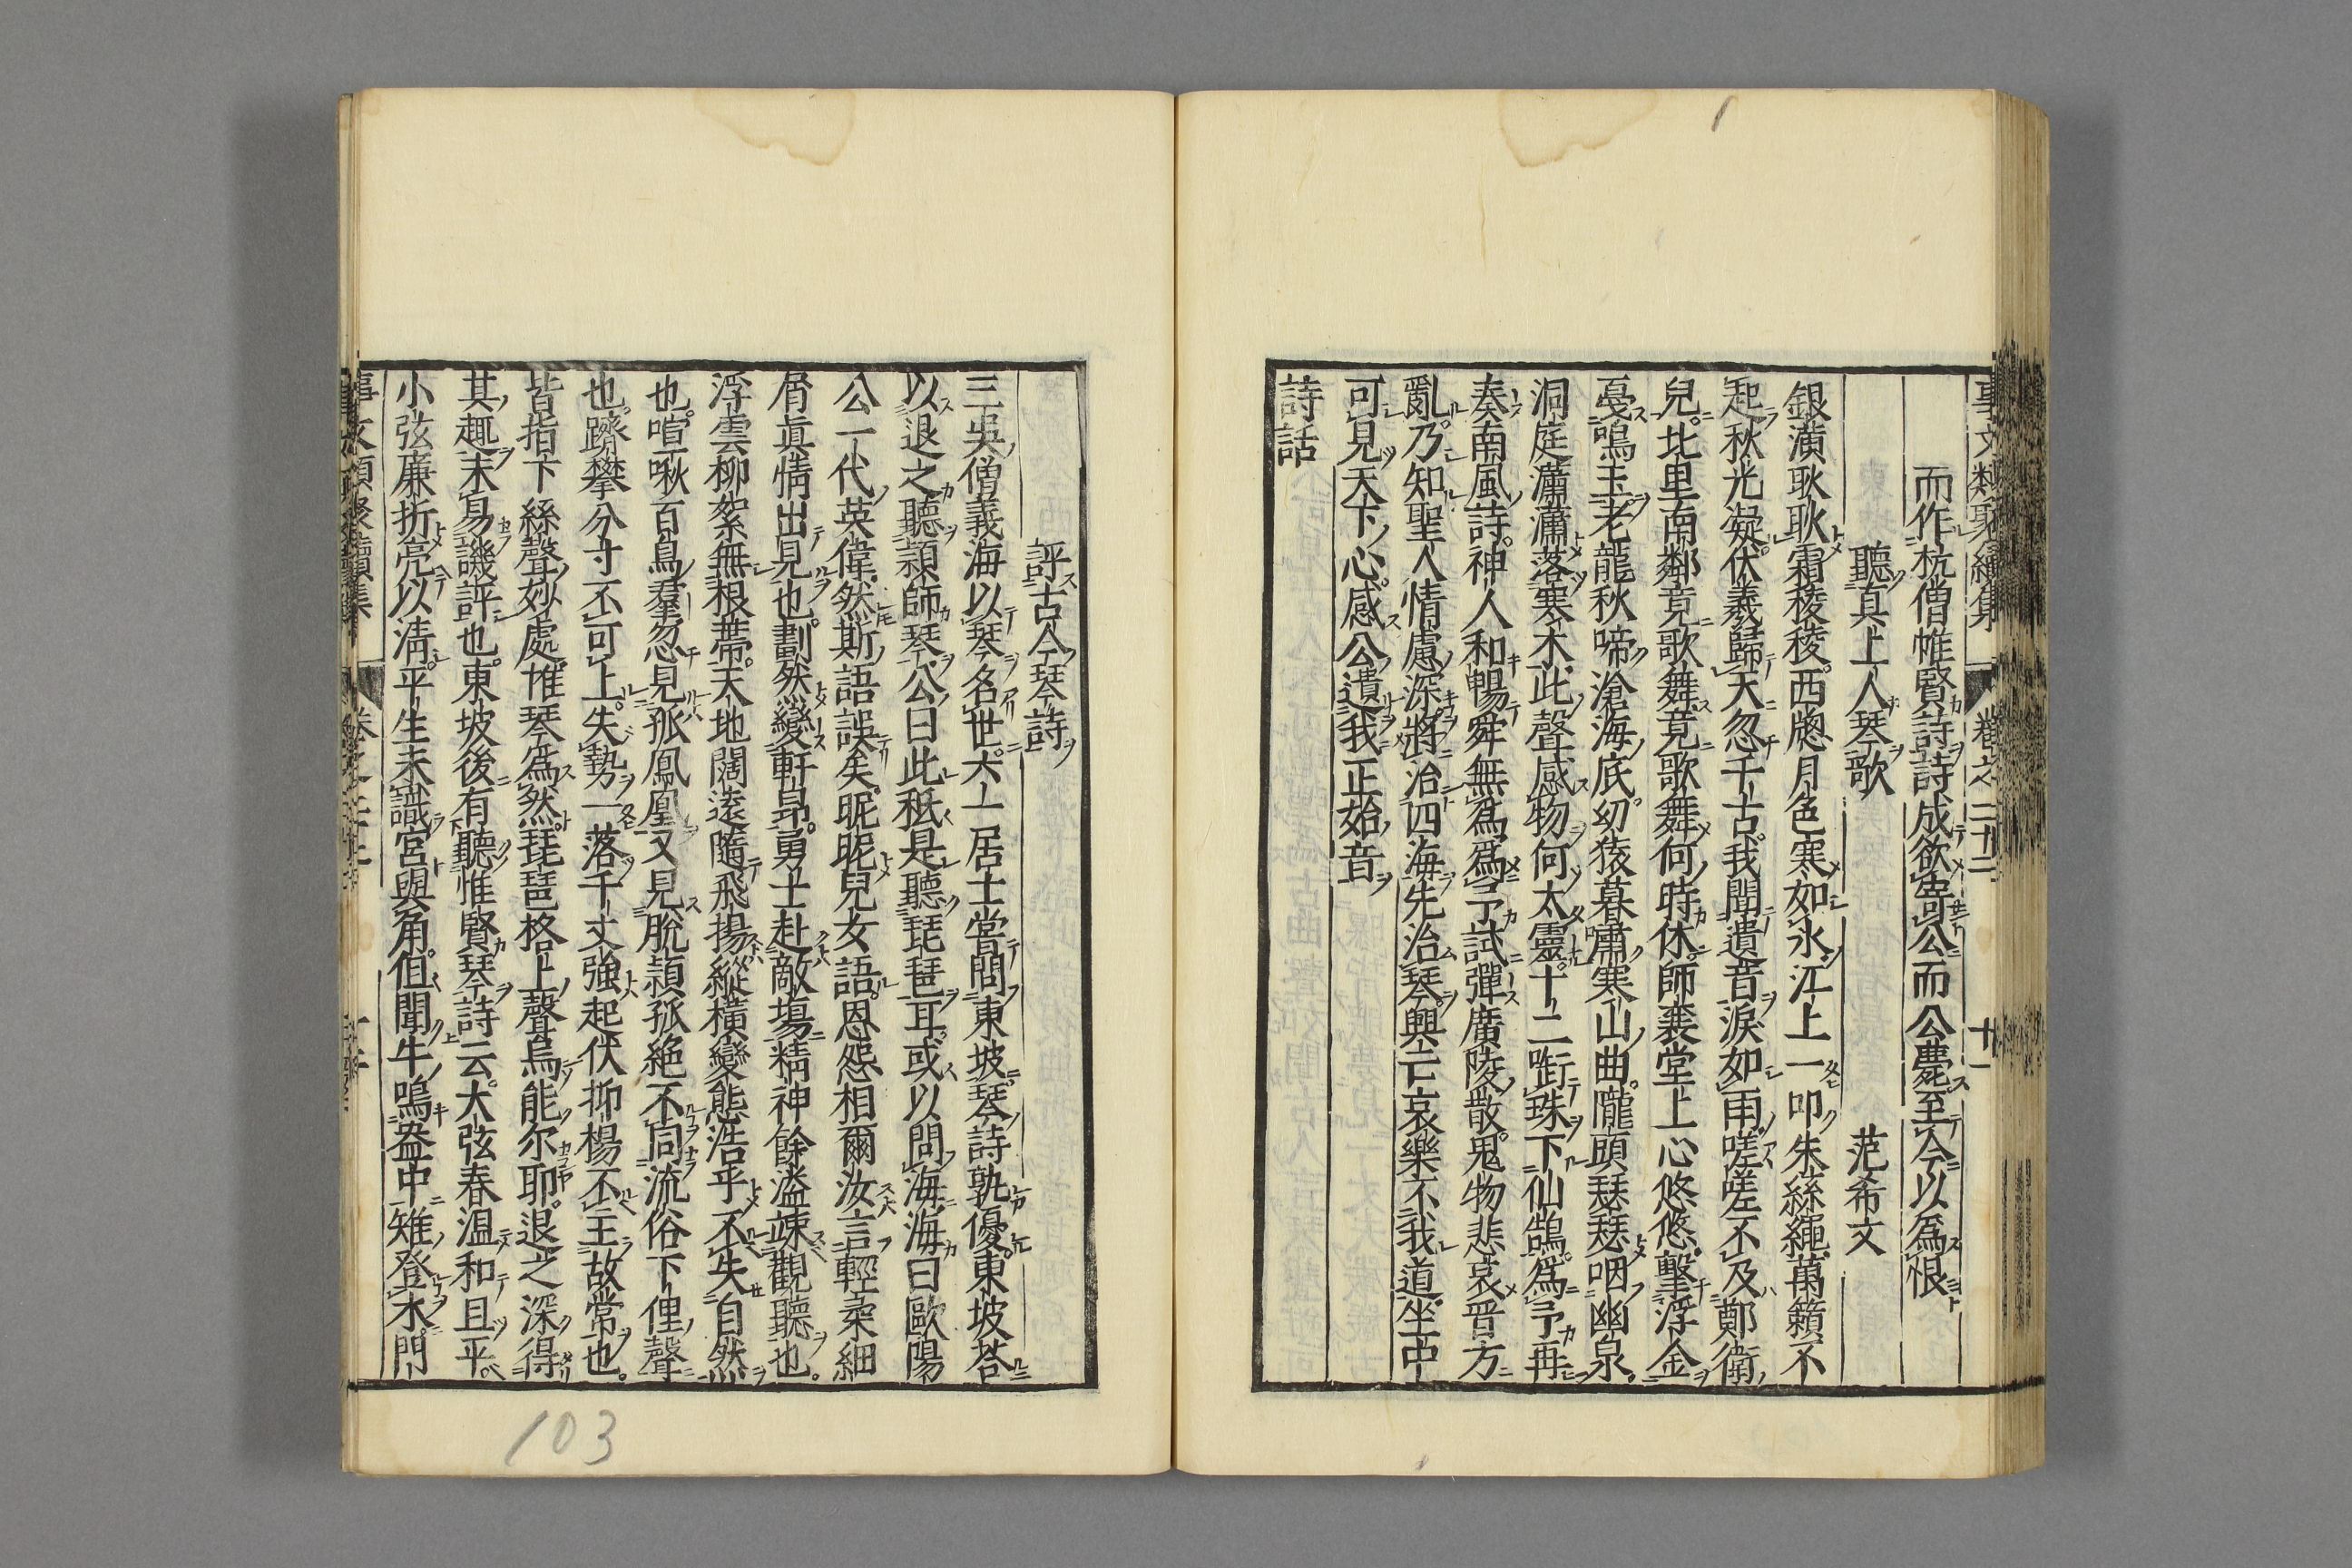 事文類聚續集 卷之二十二 十一
而作杭僧惟賢詩詩成欲寄公而公薨至今以爲恨
聽真上人琴歌 范希文
銀潢耿耿霜稜稜西牕月色寒如氷江上一叩朱絲繩萬籟不
起秋光凝伏羲歸天忽千古我聞遺音淚如雨嗟嗟不及鄭衛
兒北里南鄰竟歌舞竟歌舞何時休師襄堂上心悠悠擊浮金
戞鳴玉老龍秋啼滄海底幼猿暮嘯寒山曲隴頭瑟瑟咽幽泉
洞庭瀟瀟落寒木此聲感物何太靈十二啣珠下仙鵠爲予再
奏南風詩神人和暢舜無爲爲予試彈廣陵散鬼物悲哀晋方
亂乃知聖人情慮深將治四海先治琴興亡哀樂不我道坐中
可見天下心感公遺我正始音
詩話
評古今琴詩
三吳僧義海以琴名世六一居士嘗問東坡琴詩孰優東坡荅
以退之聽頴師琴公曰此秪是聽琵琶耳或以問海海曰歐陽
公一代英偉然斯語誤矣昵昵兒女語恩怨相爾汝言輕柔細
屑眞情出見也劃然變軒昂勇士赴敵塲精神餘溢竦觀聽也
浮雲柳絮無根蔕天地闊遠隨飛揚縱横變態浩乎不失自然
也喧啾百鳥羣忽見孤鳳凰又見脫頴孤絶不同流俗下俚聲
也躋攀分寸不可上失勢一落千丈強起伏抑楊不主故常也
皆指下絲聲妙處惟琴爲然琵琶格上聲烏能尔耶退之深得
其趣未易譏評也東坡後有聽惟賢琴詩云大弦春温和且平
小弦廉折亮以淸平生未識宮與角但聞牛鳴盎中雉登木門
事文類聚續集
103